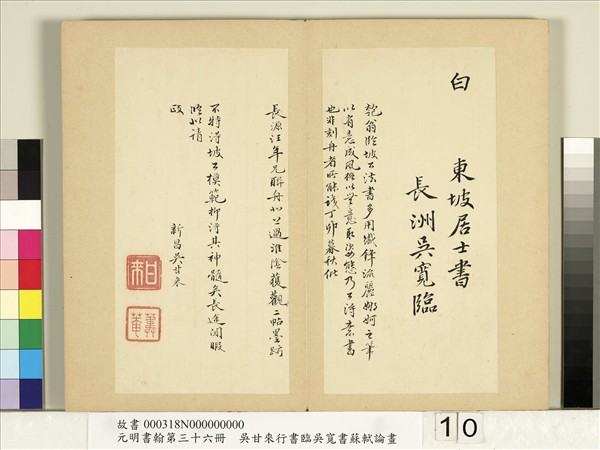 白
東坡居士書
長洲吳寬臨
匏翁臨坡公法書多用纖穠流麗婀娜之筆
以有意成風俗以無意取姿態乃公得意書
也非刻舟者所能識丁卯暮秋仳
長源汪年兄聯舟北上過淮陰獲觀二帖墨跡
不特得坡公模範抑得其神髓矣長途閒暇
臨此請
政
新昌吳甘來
甘來
故書 000318N000000000
元明書翰第三十六冊 吳甘來行書臨吳寬書蘇軾論畫
10